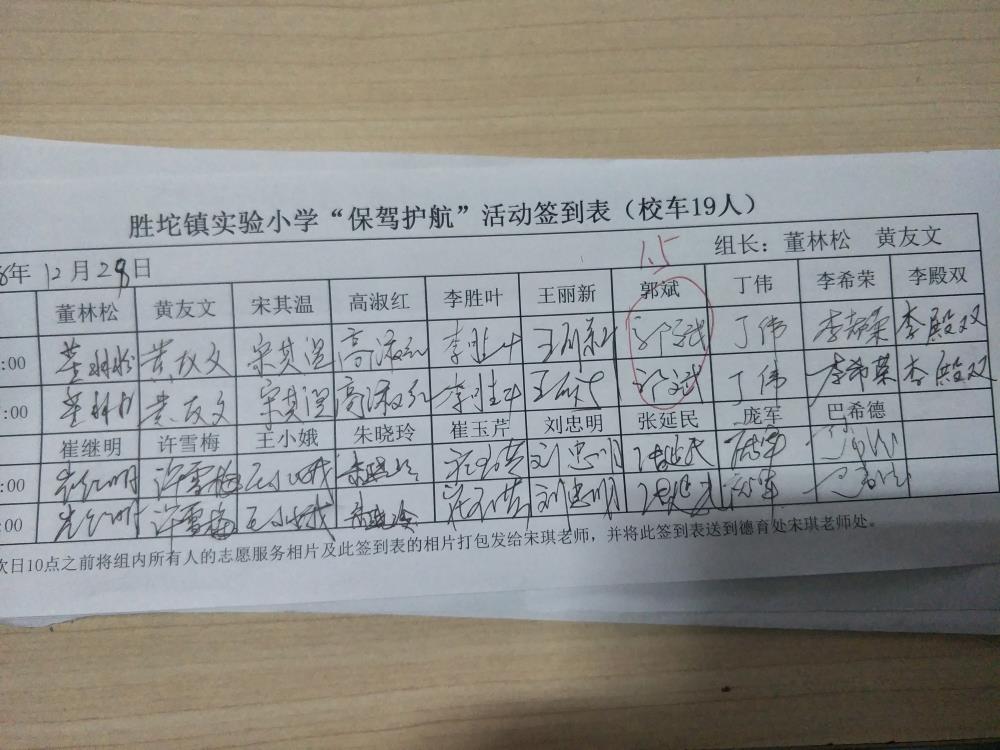 胜坨镇实验小学“保驾护航”活动签到表（校车19人）
8年 12月29日 1.5 组长：董林松 黄友文
董林松 黄友文 宋其温 高淑红 李胜叶 王丽新 郭斌 丁伟 李希荣 李殿双
:00 董林松 黄友文 宋其温 高淑红 李胜叶 王丽新 郭斌 丁伟 李希荣 李殿双
:00 董林松 黄友文 宋其温 高淑红 李胜叶 王丽新 郭斌 丁伟 李希荣 李殿双
崔继明 许雪梅 王小娥 朱晓玲 崔玉芹 刘忠明 张延民 庞军 巴希德
:00 崔继明 许雪梅 王小娥 朱晓玲 崔玉芹 刘忠明 张延民 庞军
:00 崔继明 许雪梅 王小娥 朱晓玲 崔玉芹 刘忠明 张延民 庞军
次日10点之前将组内所有人的志愿服务相片及此签到表的相片打包发给宋琪老师，并将此签到表送到德育处宋琪老师处。